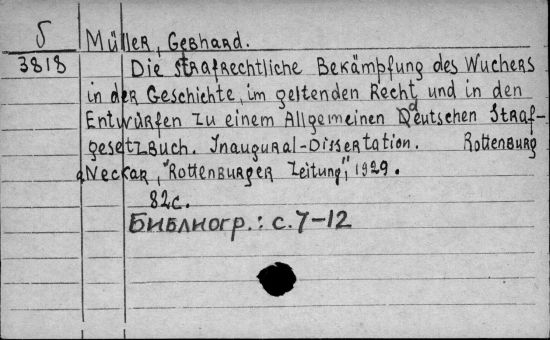 Б
3818
Müller, Gebhard.
Die strafrechtliche Bekämpfung des Wuchers
in der Geschichte, im geltenden Recht und in den
Entwürfen zu einem Allgemeinen Deutschen Straf-
gesetzbuch. Inaugural-Dissertation. Rottenburg
a Neckar, "Rottenburger Zeitung", 1929.
82c.
Библиогр.: с. 7-12